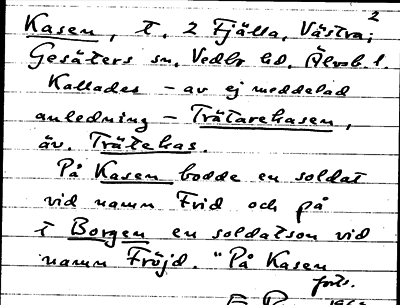 2
Kasen, t. 2 Fjälla, Västra;
Gesäters sn, Vedbo hd, Älvsb. l.
Kallades – av ej meddelad
anledning – Trätarekasen,
äv. Trätekas.
På Kasen bodde en soldat
vid namn Frid och på
t Borgen en soldatson vid
namn Fröjd. "På Kasen
forts.